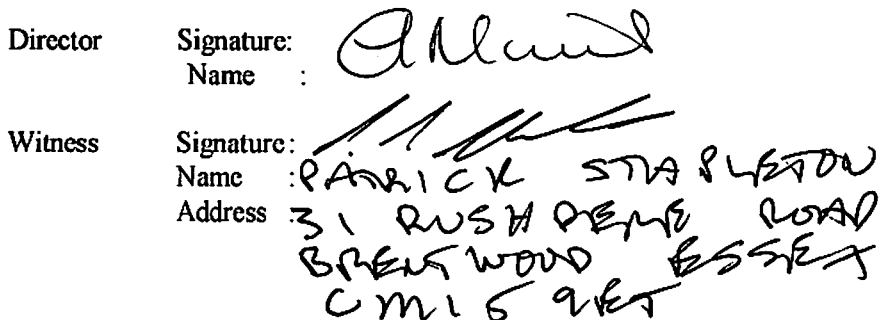 Director Signature:
Name :
Witness Signature:
Name : PATRICK STAPLETON
Address : 31 RUSHDENE ROAD
BRENTWOOD ESSEX
CM15 9ET